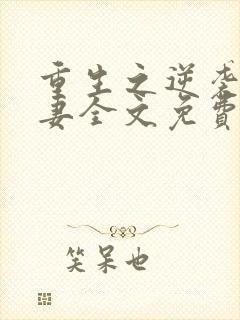 重生之逆袭
妻全文免费
笑呆也